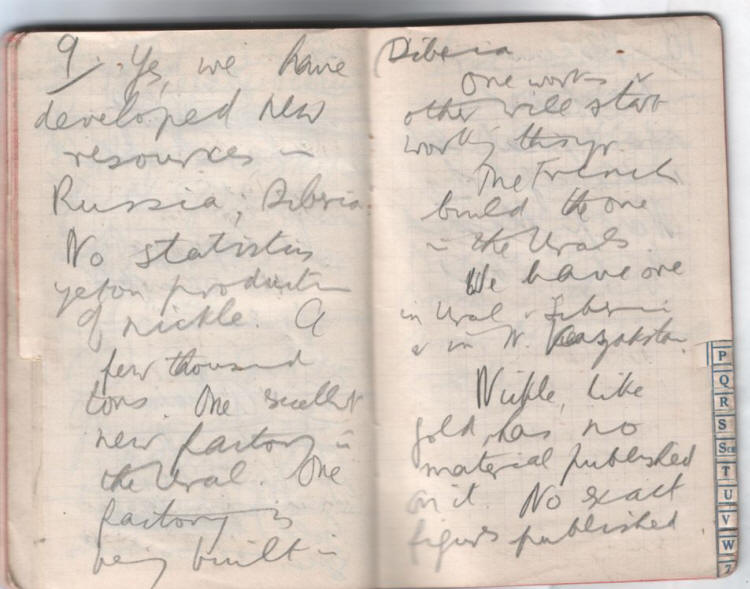 9. Yes, we have
developed new
resources in
Russia; Siberia.
No statistics
yet on production
of nickle. A
few thousand
tons. One excellent
new factory in
the Ural. One
factory is
being built in
Siberia
One works &
other will start
working this yr.
The French
build the one
in the Urals.
We have ore
in Ural & Siberia
& in N. Kazakstan.
Nickle, like
gold, has no
material published
on it. No exact
figures published
P
Q
R
S
T
U
V
W